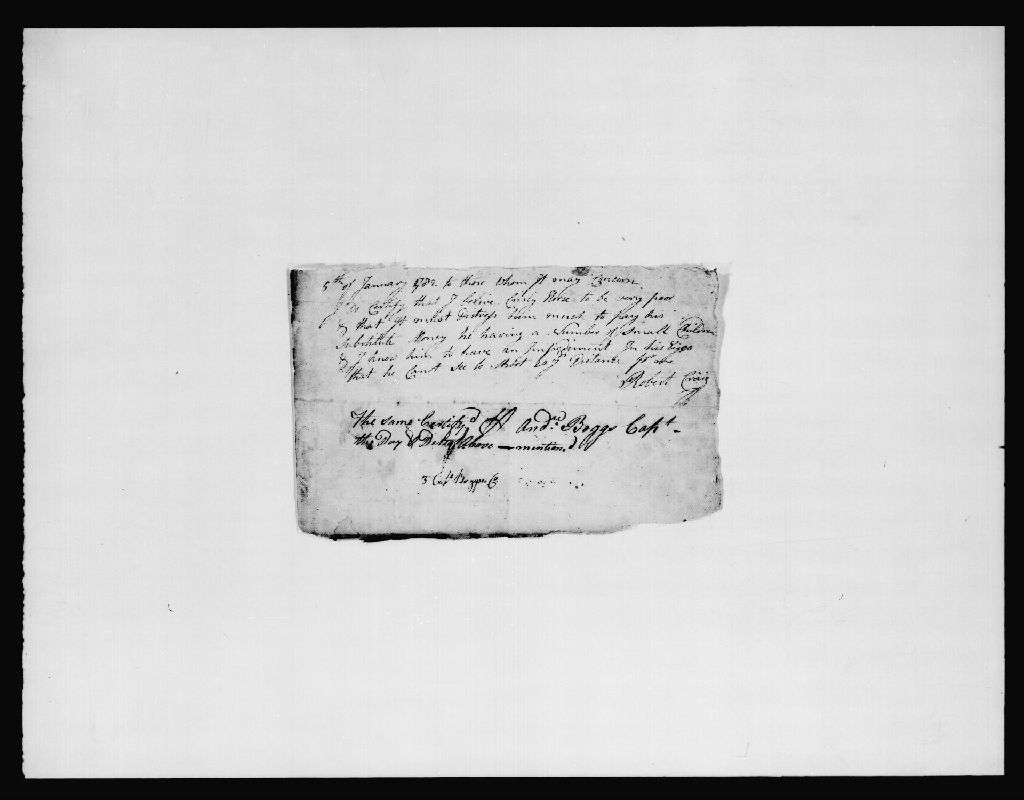 5th of January 1782 to those whom It may Concern
I Do Certify that I belive to be very poor
& that It must Distress him much to pay his
Substitute Money he having a Number of Small Children
& I know him to have an Impediment In his Eyes
that he Canot See to Shoot Distance
Robert Craig
The same Certify'd And.w Boggs Capt
the Day & Date Above mention'd
3 Capt Boggs